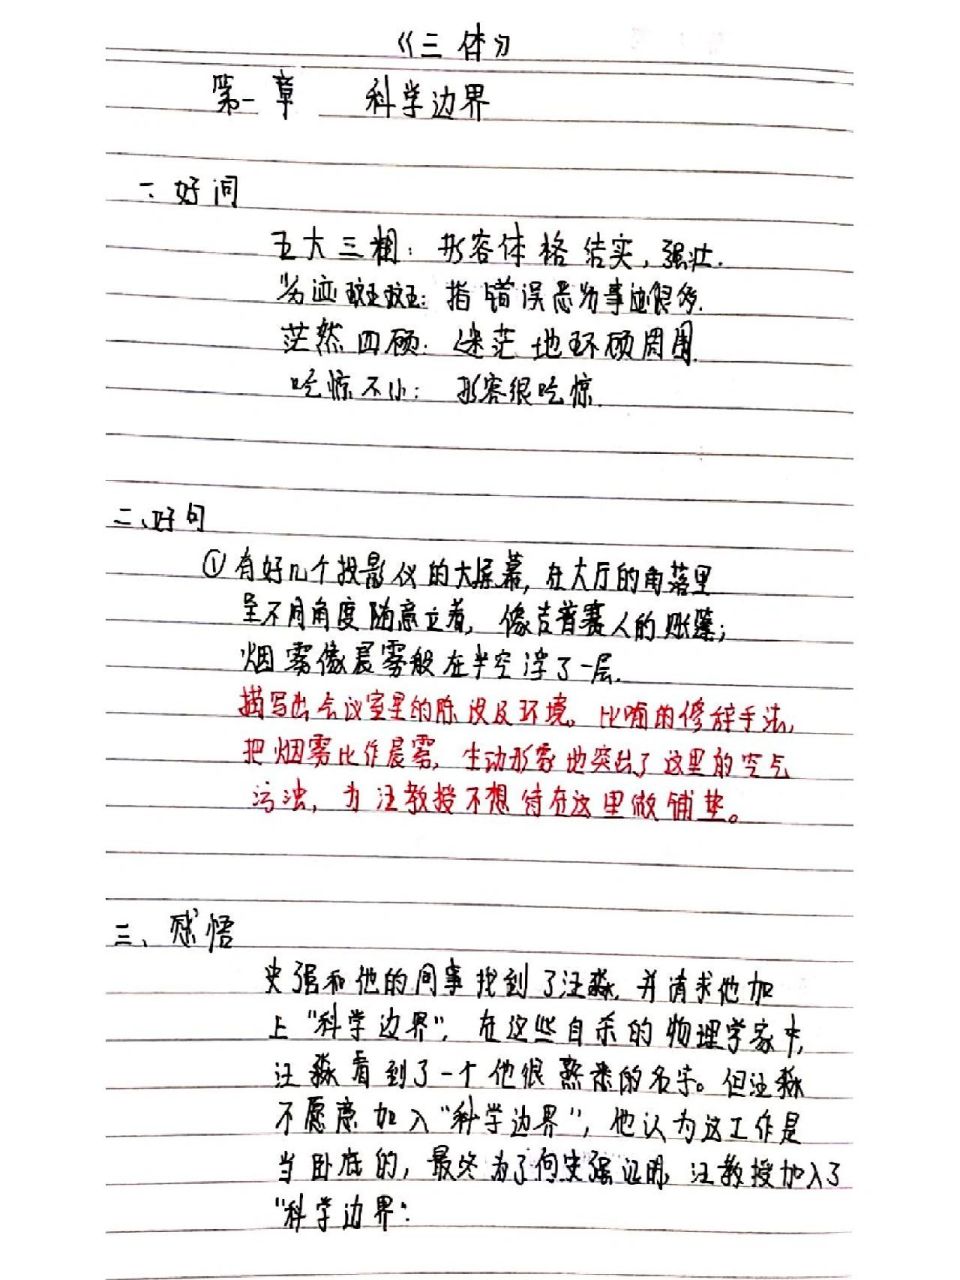 《三体》
第一章 科学边界
一、好词
五大三粗：形容体格结实，强壮.
劣迹斑斑：指错误恶劣事迹很多.
茫然四顾：迷茫地环顾周围.
吃惊不小：形容很吃惊.
二、好句
①有好几个投影仪的大屏幕，在大厅的角落里
呈不同角度随意立着，像吉普赛人的帐篷；
烟雾像晨雾般在半空浮了一层.
描写出会议室里的陈设及环境。比喻的修辞手法，
把烟雾比作晨雾，生动形象地突出了这里的空气
污浊，为汪教授不想待在这里做铺垫。
三、感悟
史强和他的同事找到了汪淼，并请求他加
上“科学边界”，在这些自杀的物理学家中，
汪淼看到了一个他很熟悉的名字。但汪淼
不愿意加入“科学边界”，他认为这工作是
当卧底的，最终为了向史强证明，汪教授加入了
“科学边界”.